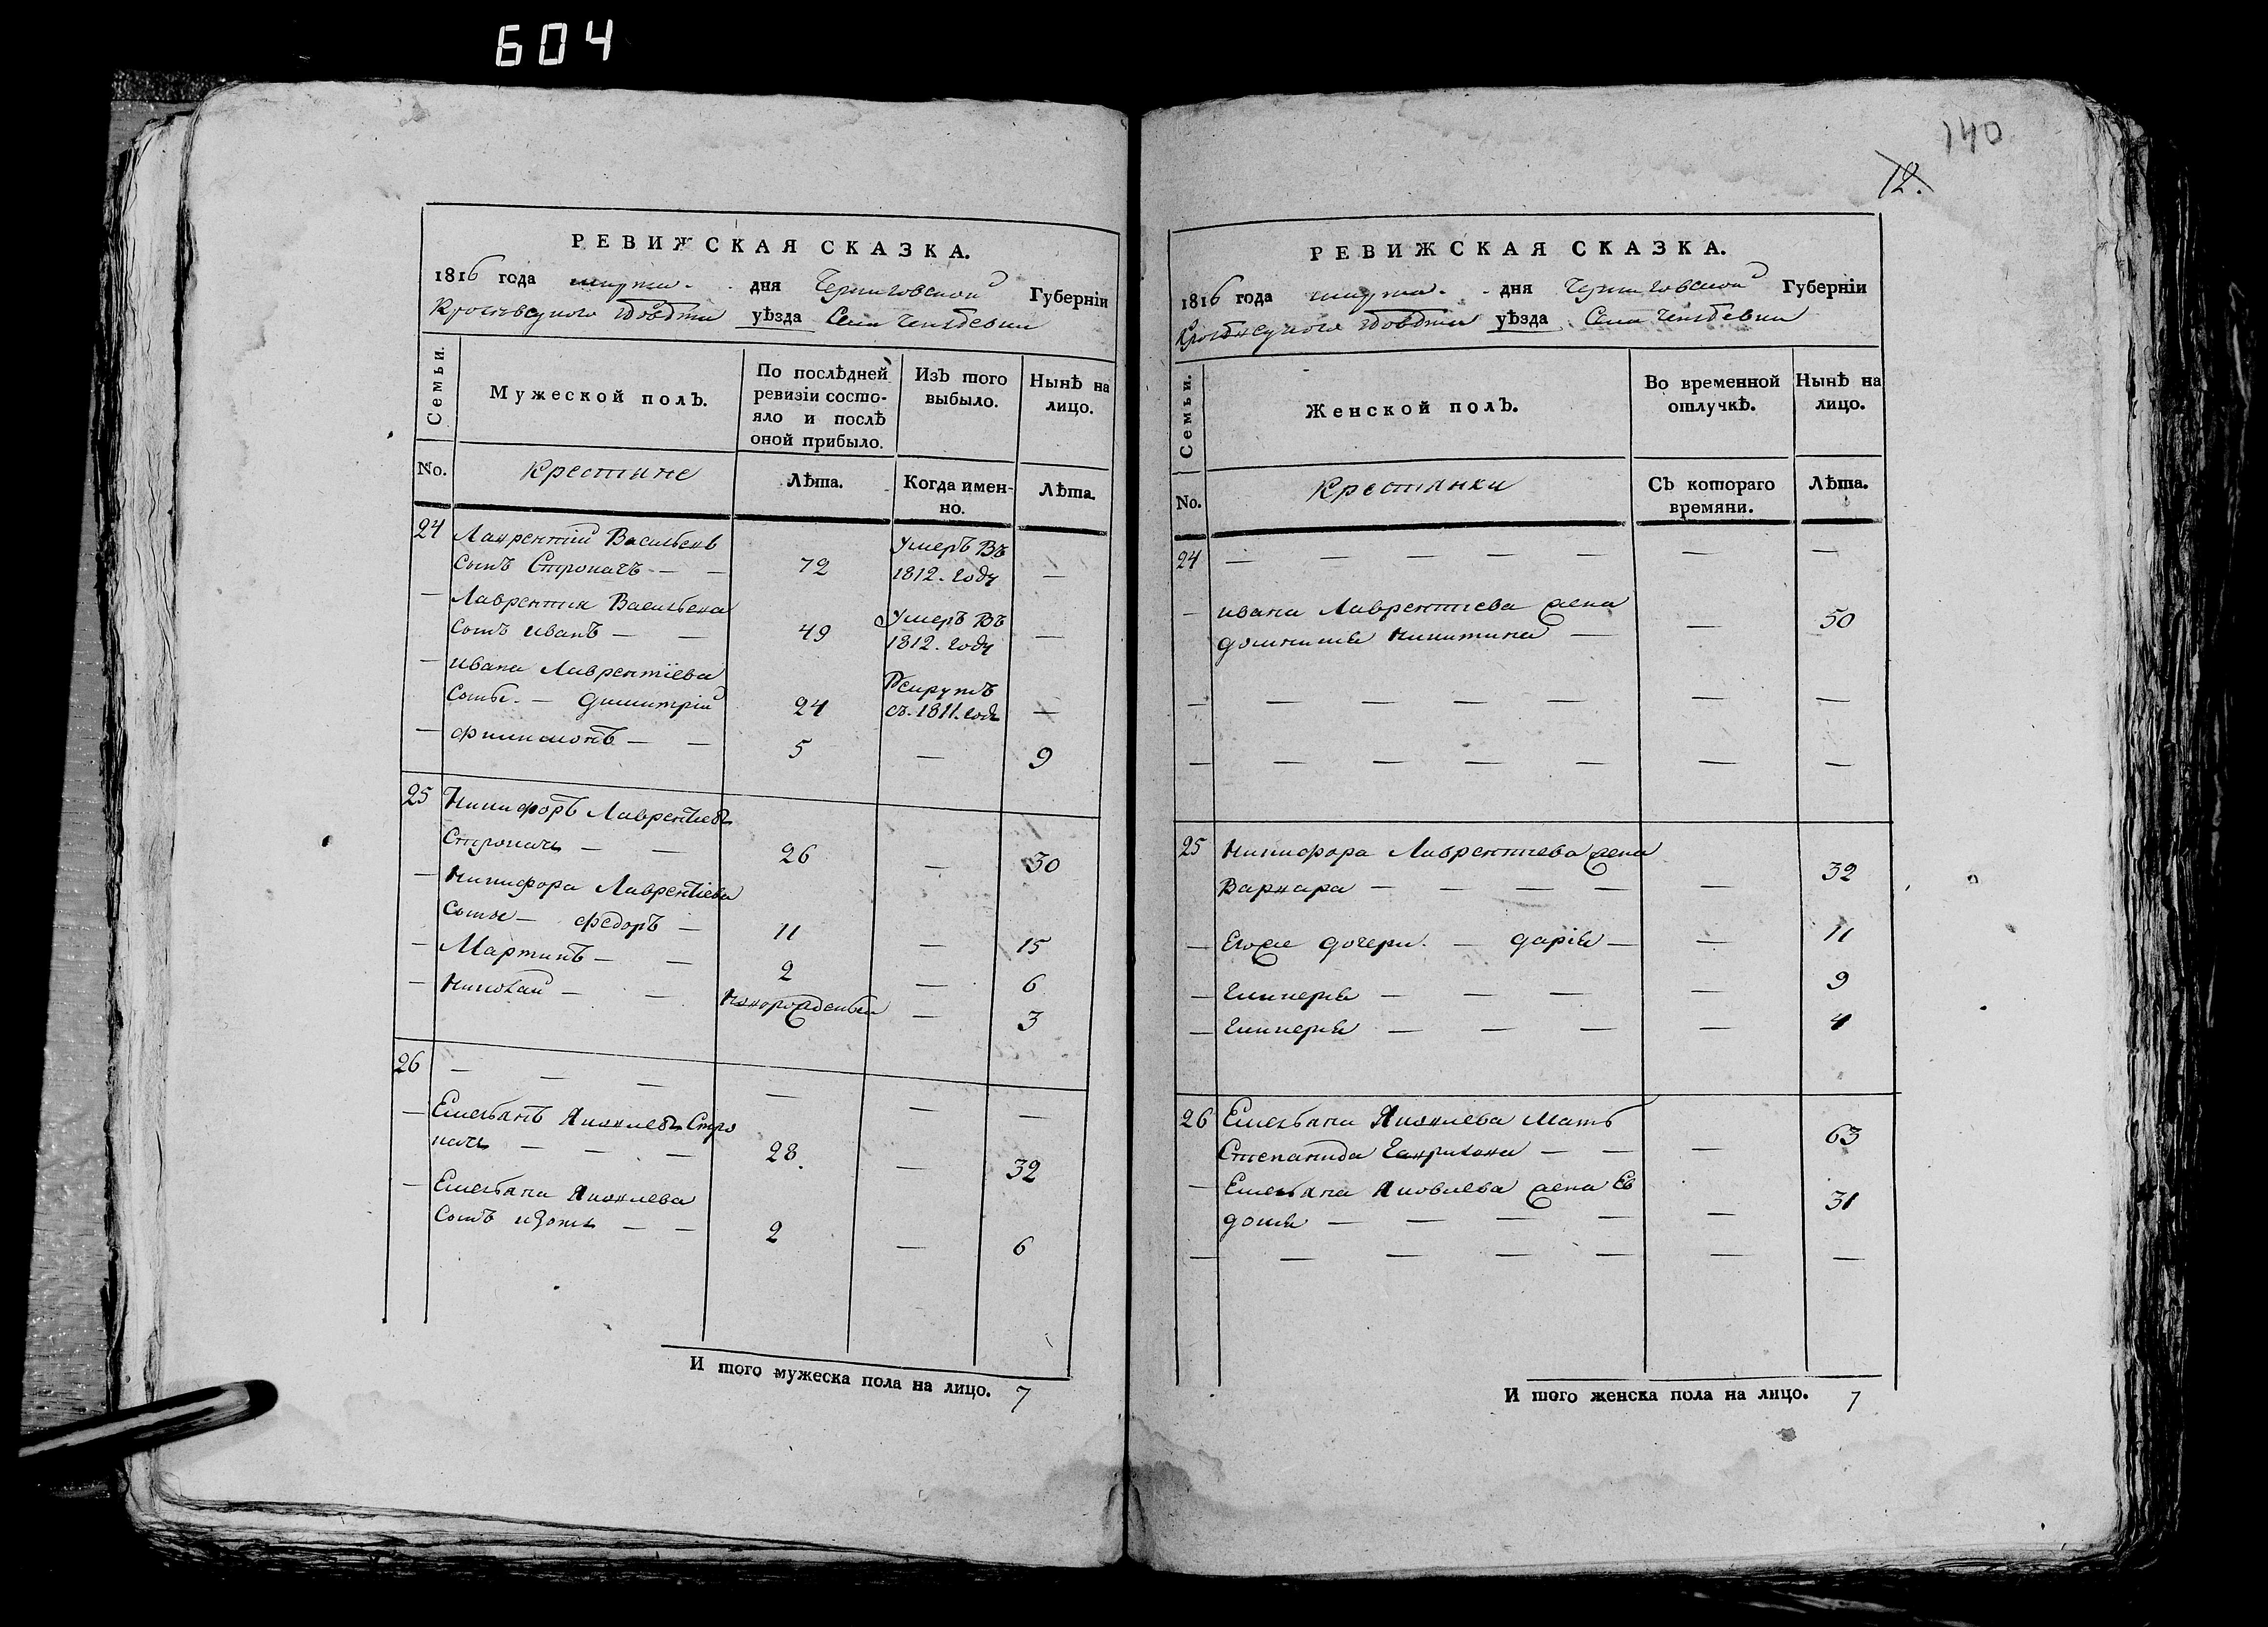 604
РЕВИЖСКАЯ СКАЗКА.
1816 года марта . дня Черниговской Губерніи
уѣзда Села
Семьи.
Мужеской полъ.
По послѣдней
ревизіи состо-
яло и послѣ
оной прибыло.
Изъ того
выбыло.
Нынѣ на
лицо.
No.
Крестьяне
Лѣта.
Когда имен-
но.
Лѣта.
24 Лаврентий Васильевъ Умеръ Въ
сынъ — — 72 1812. году —
— Лаврентия Васильева Умеръ Въ
сынъ иванъ — — 49 1812. году —
— ивана Лаврентіева Рекрутъ
сыны. — Димитрій 24 съ. 1811. года —
— филимонъ — — 5 — 9
25 Никифоръ Лаврентіевъ
— — 26 — 30
— Никифора Лаврентіева
сыны — федоръ — 11 — 15
— Мартинъ — — 2 — 6
— Николай — — Новорожденный — 3
26 — — — — — —
— Емельянъ Яковлевъ
— — — 28. — 32
— Емельяна Яковлева
сынъ изотъ — — 2 — 6
И того мужеска пола на лицо. 7
140
12.
РЕВИЖСКАЯ СКАЗКА.
1816 года марта . дня Черниговской Губерніи
уѣзда Села
Семьи.
Женской полъ.
Во временной
отлучкѣ.
Нынѣ на
лицо.
No.
Крестьянки
Съ котораго
времяни.
Лѣта.
24 — — — — — — —
— ивана Лаврентиева жена
домникия Никитина — — 50
— — — — — — — —
— — — — — — — —
25 Никифора Лаврентиева жена
Варвара — — — — — 32
— Егоже дочери. — дарія — — 11
— Гликерия — — — — 9
— Гликерия — — — — 4
26 Емельяна Яковлева Мать
Степанида Гаврилова — — — 63
— Емельяна Яковлева жена Ев
докия — — — — — 31
— — — — — — — —
И того женска пола на лицо. 7